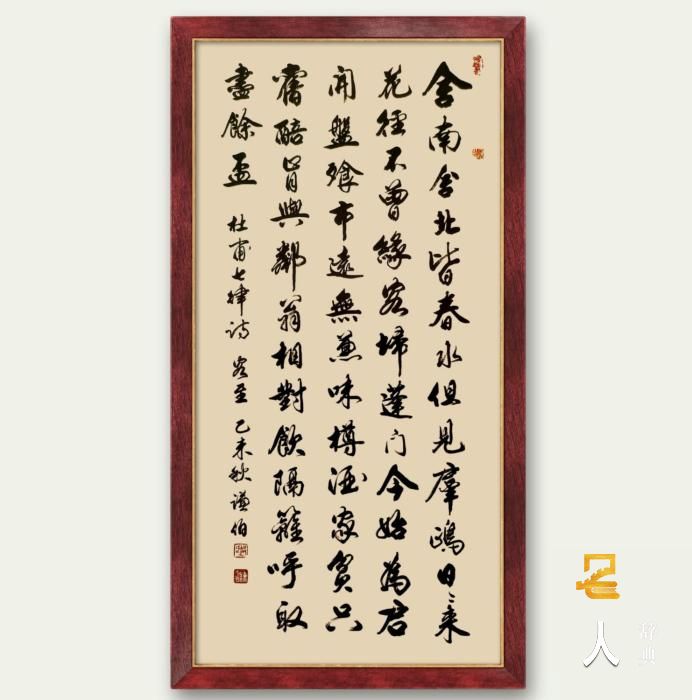 舍南舍北皆春水但見羣鷗日〻来
花徑不曾緣客掃蓬門今始為君
開盤飧市遠無兼味樽酒家貧只
舊醅肯與鄰翁相對飲隔籬呼取
盡餘盃 杜甫七律诗 客至 乙未秋 谦伯
人
辞典